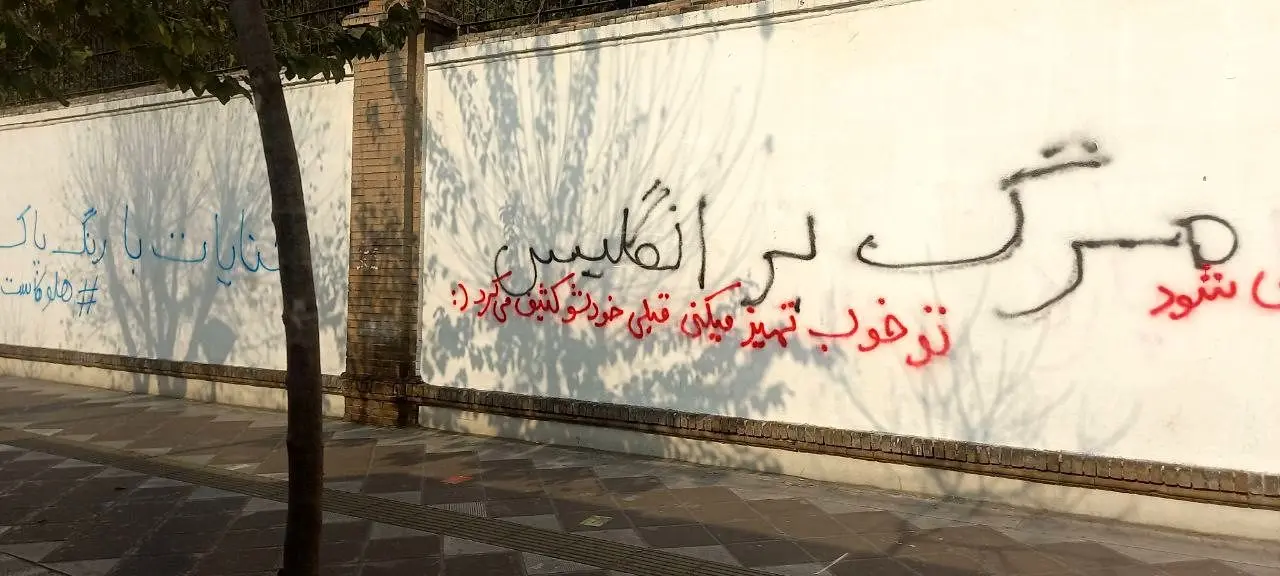 مرگ بر انگلیس
نشود
تو خوب تمیز میکنی قبلی خودشو کثیف می‌کرد (:
با رنگ پاک
#هلوکاست